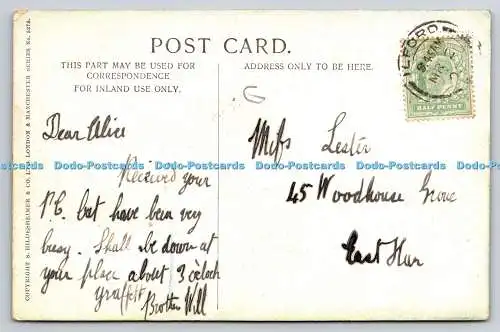 POST CARD.
THIS PART MAY BE USED FOR
CORRESPONDENCE
FOR INLAND USE ONLY.
ADDRESS ONLY TO BE HERE.
COPYRIGHT S. HILDESHEIMER & CO. LTD. LONDON & MANCHESTER SERIES No.
ILFORD
HALF PENNY
G
Dear Alice
Received your
P.C. but have been very
busy. Shall be down at
your place about 3 o'clock
Brother Will
Miss Lester
45 Woodhouse Grove
East Ham
Dodo-Postcards Dodo-Postcards Dodo-Postcards Dodo-Postcards Dodo-Postcards